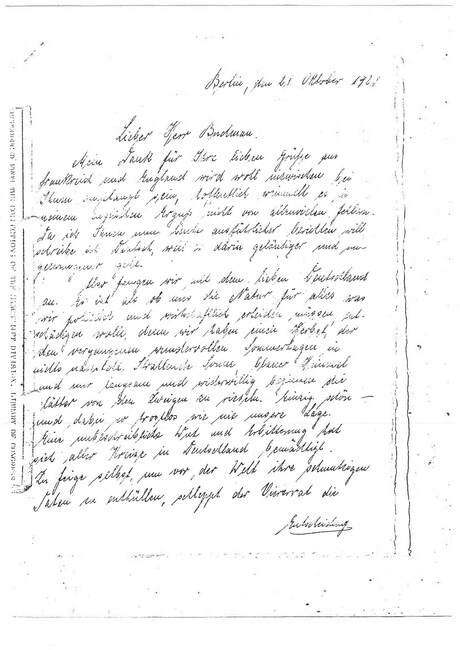 Berlin, den 21. Oktober 192
Lieber Herr Budman.
Mein Dank für Ihre lieben Grüße aus
Frankreich und England wird wohl inzwischen bei
Ihnen angelangt sein, hoffentlich wimmelt es in
meinem englischen Erguss nicht von
Da ich Ihnen nun heute ausführlicher berichten will
schreibe ich Deutsch, weil es darin geläufiger und un-
gezwungener geht.
Also fangen wir mit dem lieben Deutschland
an. Es ist als ob uns die Natur für alles was
wir politisch und wirtschaftlich erleiden, müssen ent-
schädigen wolle, denn wir haben einen Herbst, der
den vergangenen wundervollen Sommertagen in
nichts nachsteht. Strahlende Sonne, blauer Himmel
und nur langsam und widerwillig beginnen die
Blätter von den Zweigen zu rieseln. Einzig schön —
und dabei so trostlos wie nie unsere Lage.
Eine unbeschreibliche Wut und Erbitterung hat
sich aller Kreise in Deutschland bemächtigt.
Zu feige selbst, um vor der Welt ihre schmutzigen
Taten zu enthüllen, schleppt der die
Entscheidung